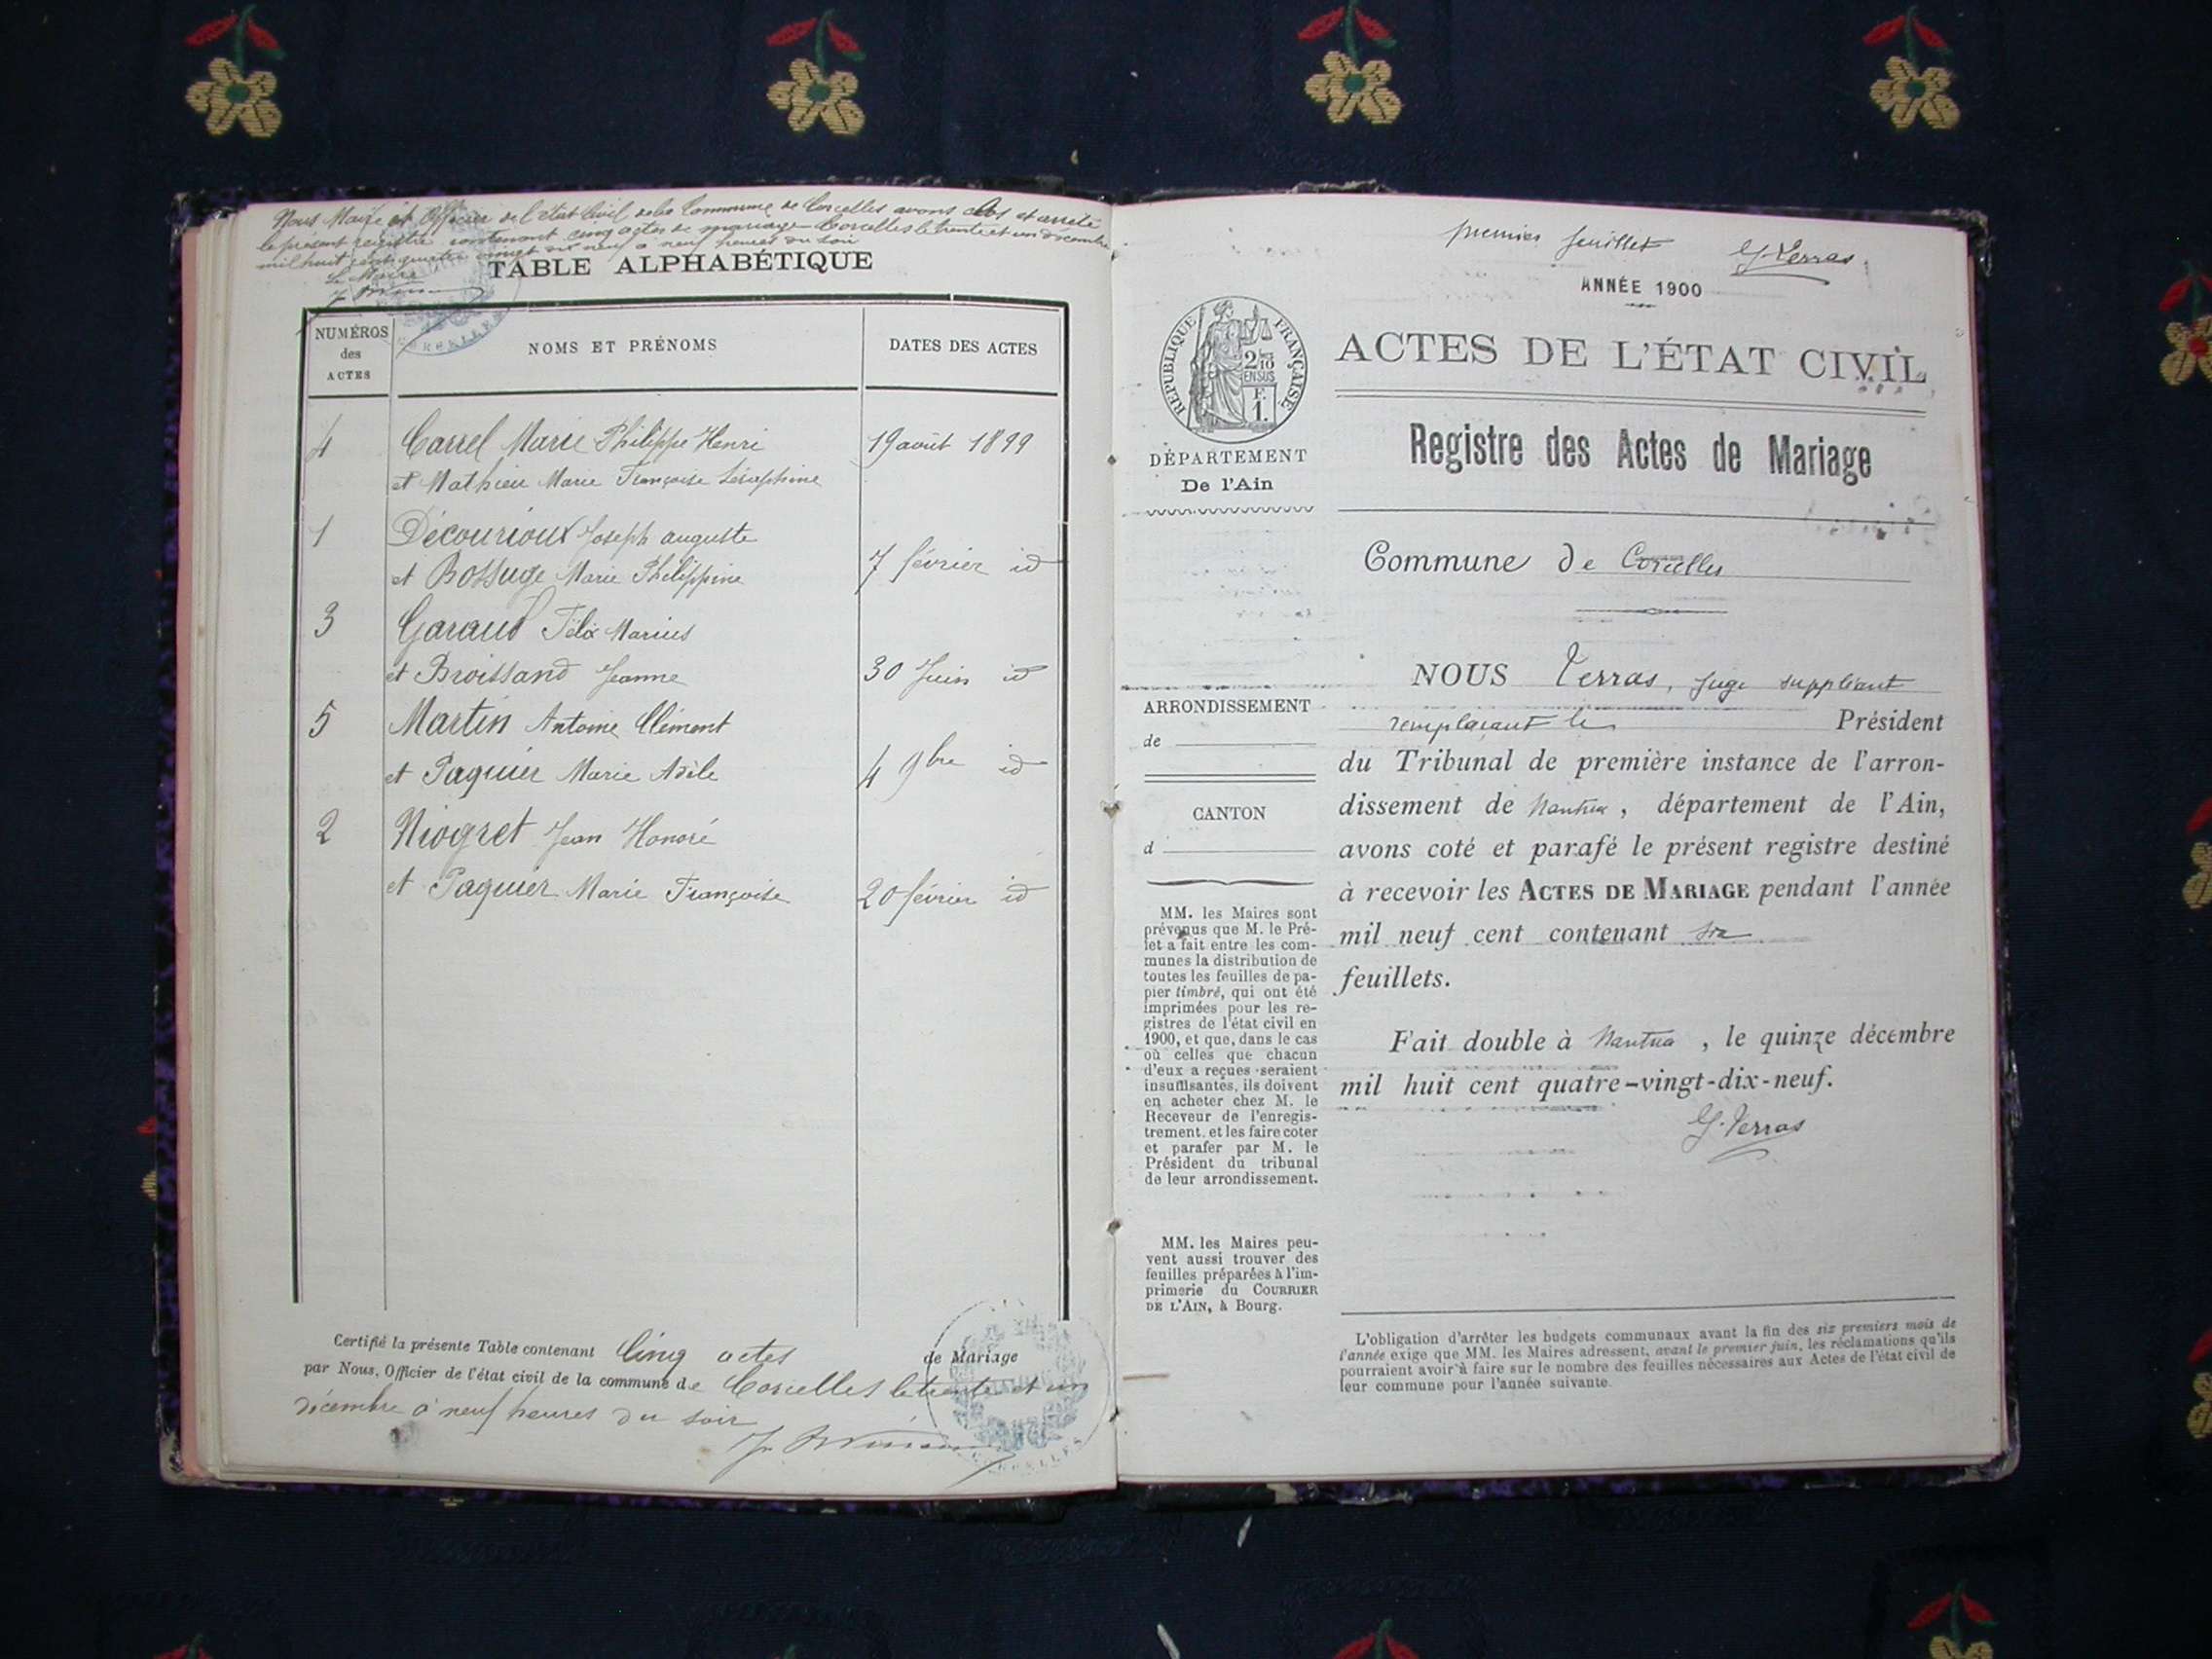 Nous Maire et Officier de l'état Civil de la Commune de Corcelles avons clos et arrêté
le présent registre contenant cinq actes de mariage Corcelles le trente et un décembre
mil huit cent quatre vingt dix neuf à neuf heures du soir
Le Maire
TABLE ALPHABÉTIQUE
NUMÉROS
des
ACTES
NOMS ET PRÉNOMS
DATES DES ACTES
4 Carrel Marie Philippe Henri 19 août 1899
et Mathieu Marie Françoise Séraphine
1 Décourioux Joseph auguste
et Bossuge Marie Philippine 7 février id
3 Garaud Félix Marius
et Broissand Jeanne 30 Juin id
5 Martin Antoine Clément
et Paquier Marie Adèle 4 9bre id
2 Niogret Jean Honoré
et Paquier Marie Françoise 20 février id
Certifié la présente Table contenant Cinq actes de Mariage
par Nous, Officier de l'état civil de la commune de Corcelles le trente et un
décembre à neuf heures du soir
CORCELLES
premier feuillet G. Terras
ANNÉE 1900
RÉPUBLIQUE FRANÇAISE
2/10
EN SUS
F.
1.
ACTES DE L'ÉTAT CIVIL
DÉPARTEMENT
De l'Ain
Registre des Actes de Mariage
Commune de Corcelles
ARRONDISSEMENT
de
CANTON
d
MM. les Maires sont
prévenus que M. le Pré-
fet a fait entre les com-
munes la distribution de
toutes les feuilles de pa-
pier timbré, qui ont été
imprimées pour les re-
gistres de l'état civil en
1900, et que, dans le cas
où celles que chacun
d'eux a reçues seraient
insuffisantes, ils doivent
en acheter chez M. le
Receveur de l'enregis-
trement, et les faire coter
et parafer par M. le
Président du tribunal
de leur arrondissement.
MM. les Maires peu-
vent aussi trouver des
feuilles préparées à l'im-
primerie du COURRIER
DE L'AIN, à Bourg.
NOUS Terras, juge suppléant
remplaçant le Président
du Tribunal de première instance de l'arron-
dissement de Nantua, département de l'Ain,
avons coté et parafé le présent registre destiné
à recevoir les ACTES DE MARIAGE pendant l'année
mil neuf cent contenant six
feuillets.
Fait double à Nantua, le quinze décembre
mil huit cent quatre-vingt-dix-neuf.
G. Terras
L'obligation d'arrêter les budgets communaux avant la fin des six premiers mois de
l'année exige que MM. les Maires adressent, avant le premier juin, les réclamations qu'ils
pourraient avoir à faire sur le nombre des feuilles nécessaires aux Actes de l'état civil de
leur commune pour l'année suivante.